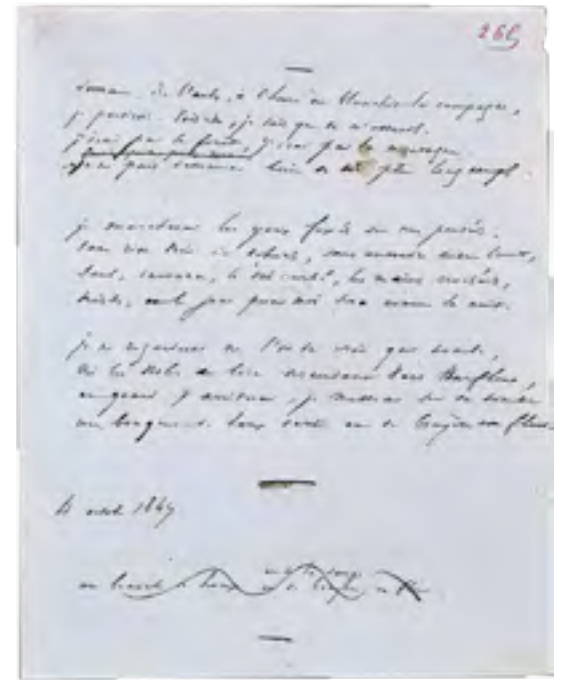 265
demain, dès l'aube, à l'heure où blanchit la campagne,
je partirai. Vois-tu, je sais que tu m'attends.
j'irai par la forêt, j'irai par la montagne.
je ne puis demeurer loin de toi plus longtemps.
je marcherai les yeux fixés sur mes pensées,
sans rien voir au dehors, sans entendre aucun bruit,
seul, inconnu, le dos courbé, les mains croisées,
triste, et le jour pour moi sera comme la nuit.
je ne regarderai ni l'or du soir qui tombe,
ni les voiles au loin descendant vers Harfleur,
et quand j'arriverai, je mettrai sur ta tombe
un bouquet de houx vert et de bruyère en fleur.
4 octob. 1847
un bouquet de houx et de bruyère en fleur